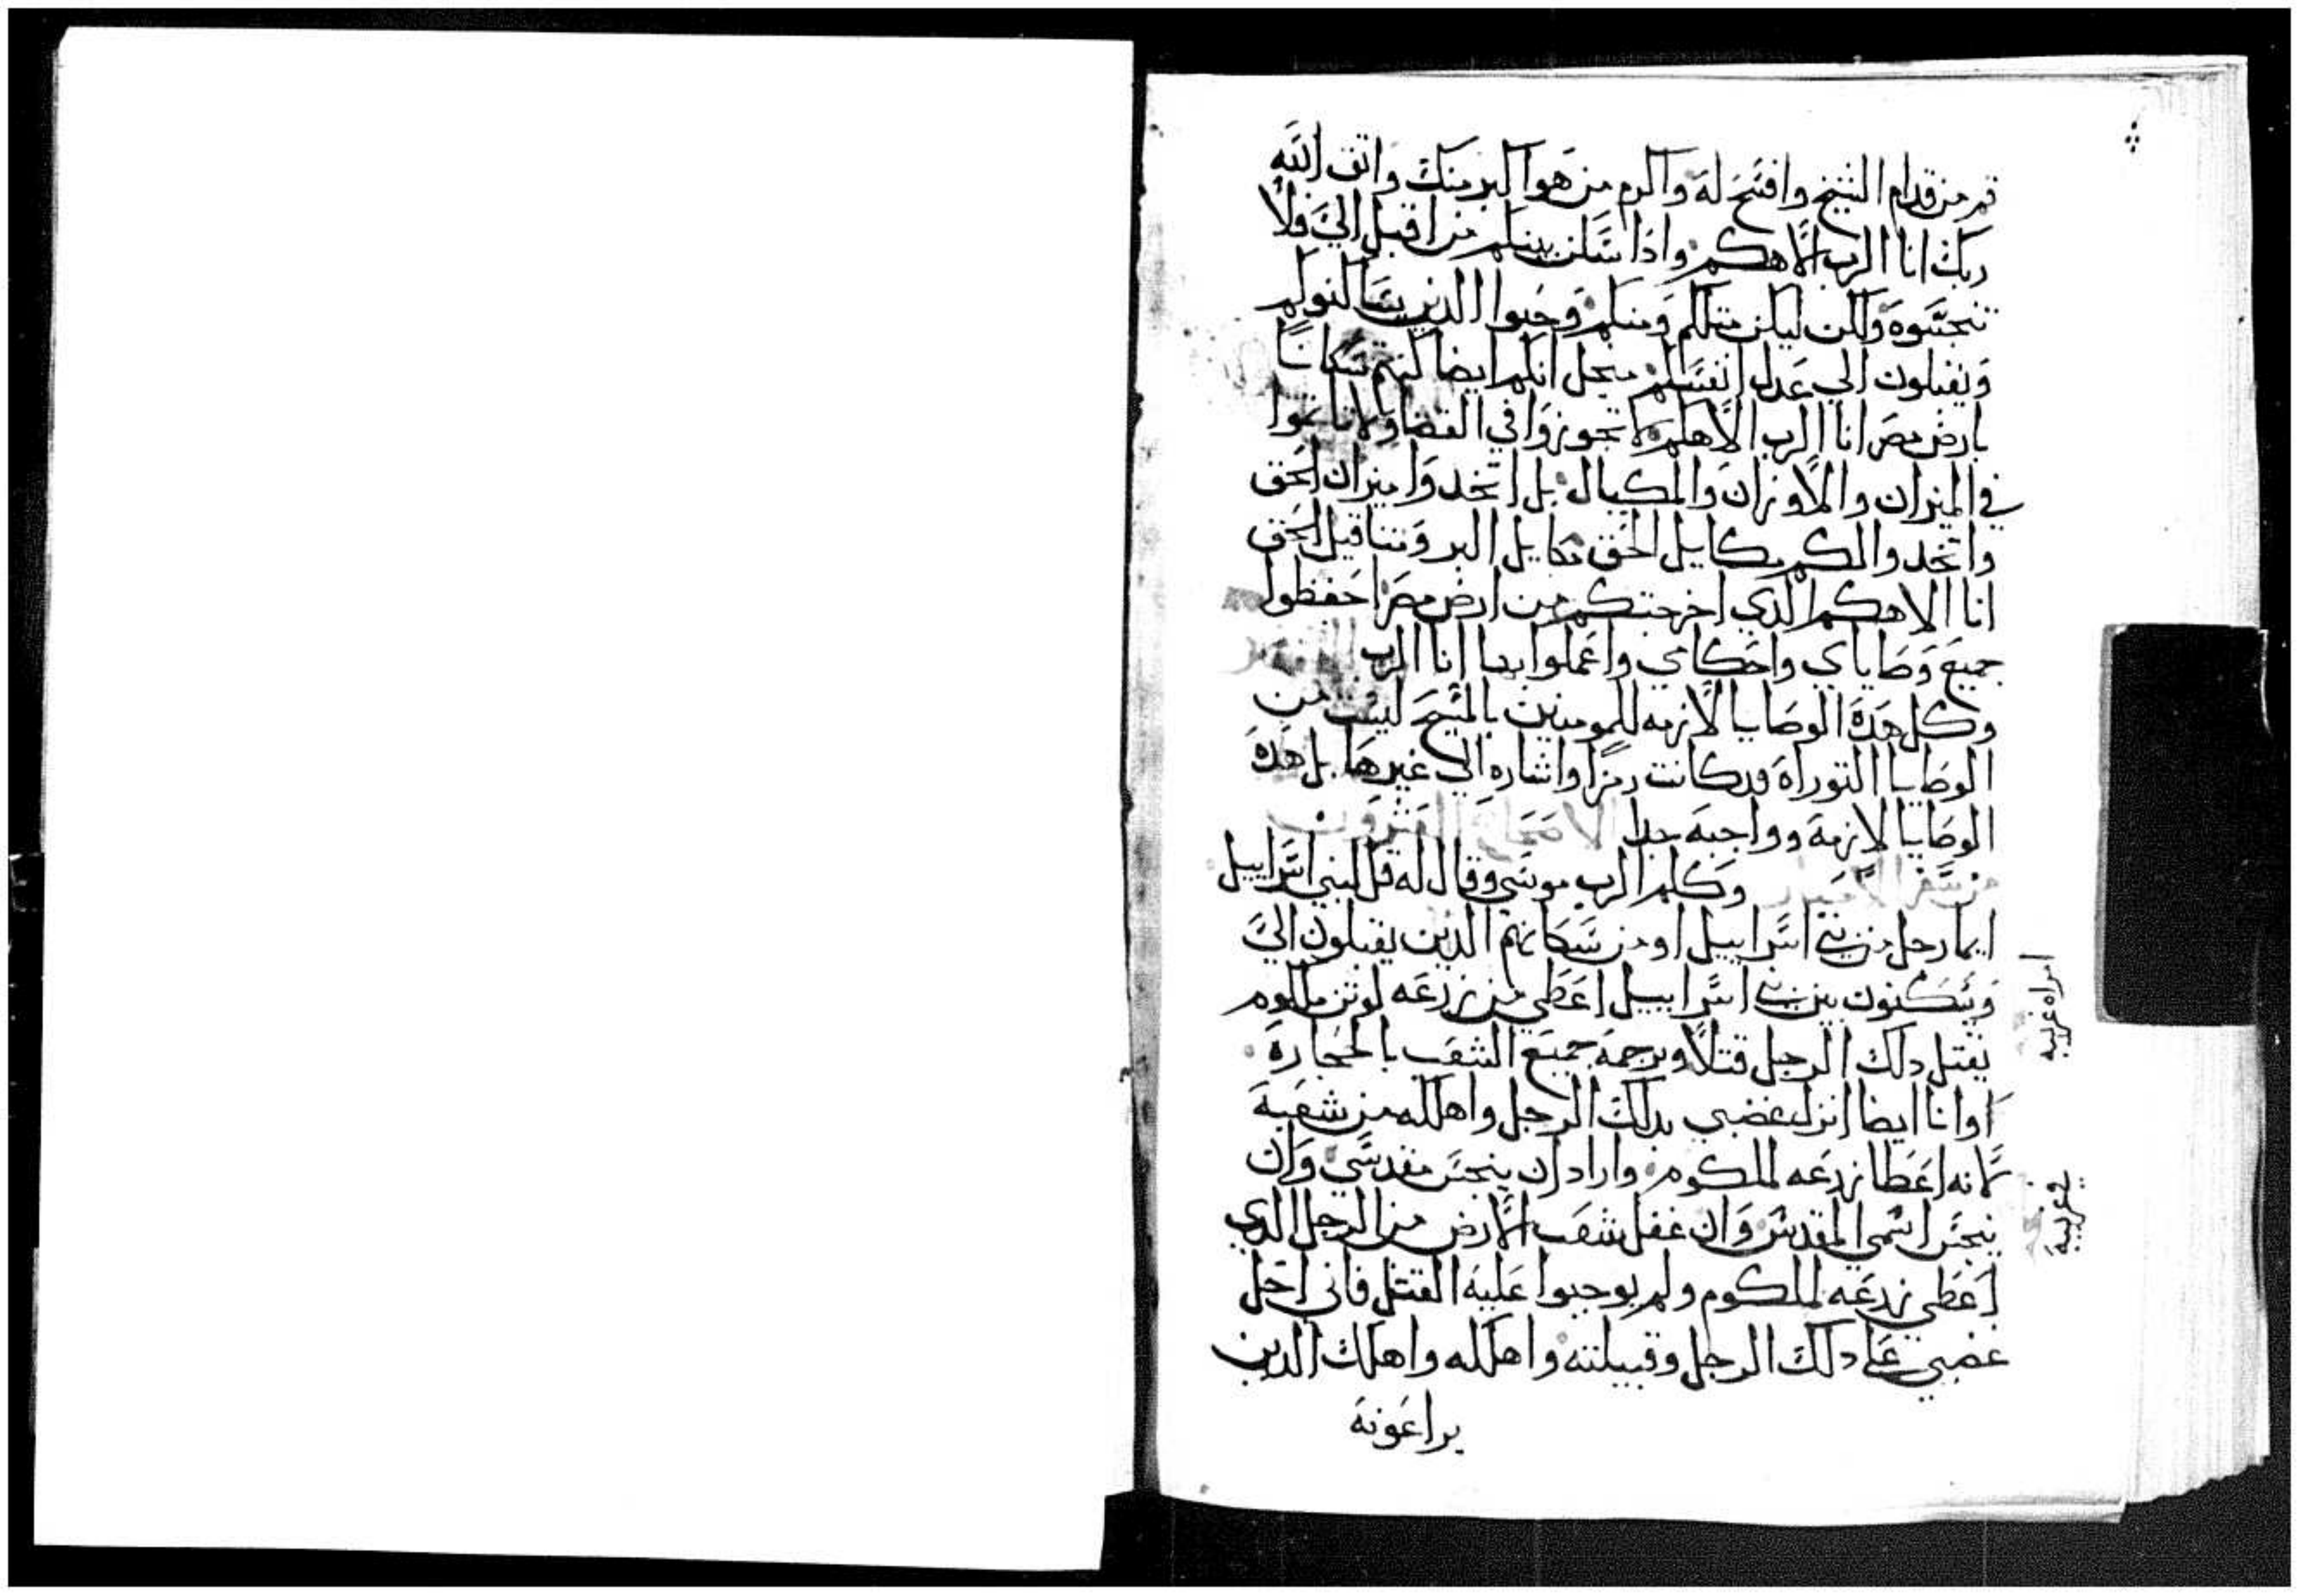 قم من قدام الشيخ وافتح له واكرم من هوا اكبر منك واتق الله
ربك انا الرب الاهكم واذا سكن بينكم من اقبل الي فلا
تنجسوه ولكن ليكن مثلكم ومنكم وحبوا الذين يساكنوكم
ويقبلون الي عدل انفسكم من جل انكم ايضا كنتم سكانا
بارض مصر انا الرب الاهكم لا تجوزوا في القضا ولا تاثموا
في الميزان والاوزان والمكيال بل اتخدوا ميزان الحق
واتخدوا لكم مكاييل الحق مكاييل البر ومثاقيل الحق
انا الاهكم الدي اخرجتكم من ارض مصر احفظوا
جميع وصاياي واحكامي واعملوا بها انا الرب
وكل هده الوصايا لازمه للمومنين بالمسيح ليست من
الوصايا التوراه قد كانت رمزا واشاره الي غيرها بل هده
الوصايا لازمة وواجبه جدا الاصحاح العشرون
من سفر الاحبار وكلم الرب موسي وقال له قل لبني اسراييل
ايما رجل من بني اسراييل او من سكانهم الدين يقبلون الي
ويسكنون بين بني اسراييل اعطي من زرعه لوثن ملكوم
يقتل دلك الرجل قتلا ويرجمه جميع الشعب بالحجارة
اوانا ايضا انزل غضبي بدلك الرجل واهلكه من شعبه
لانه اعطا زرعه لملكوم واراد ان ينجس مقدسي وان
ينجس اسمي المقدس وان غفل شعب الارض من الرجل الدي
اعطي زرعه لملكوم ولم يوجبوا عليه القتل فاني احل
غضبي علي دلك الرجل وقبيلته واهلكه واهلك الدين
يراعونه
امراه غريبه
غريبة